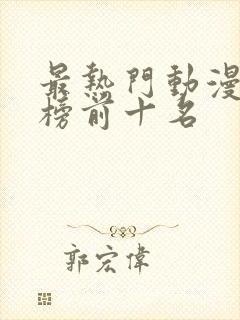 最熱門動漫
榜前十名
郭宏偉